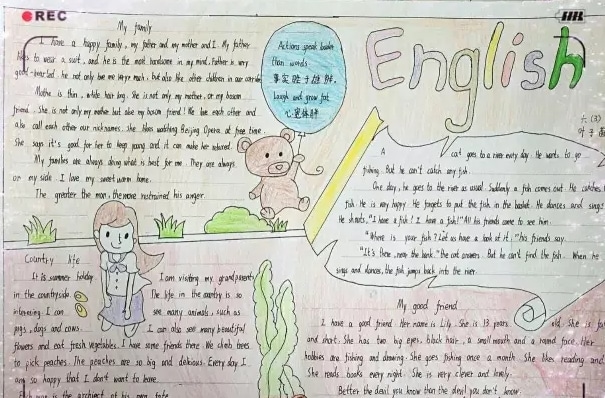 REC
HR
My family
I have a happy family, my father and my mother and I. My father
likes to wear a suit, and he is the most handsome in my mind, Father is very
good-hearted. he not only love me very much, but also like other children in our
Mothe is thin, white, hair long. She is not only my mother, or my bosom
friend. She is not only my mother but also my bosom friend! We love each other and
also call each other our nicknames. she likes watching Beijing Opera at free time.
She says it's good for her to keep young and it can make her relaxed.
My families are always doing what is best for me. They are always
on my side. I love my sweet warm home.
The greater the man, the more restrained his anger.
Actions speak louder
than words
事实胜于雄辩.
Laugh and grow fat
心宽体胖
English
六(3)
A cat goes to a river every day. He wants to go
fishing. But he can't catch any fish.
One day, he goes to the river as usual. Suddenly a fish comes out. He catches
fish. He is very happy. He forgets to put the fish in the basket. He dances and sings
He shouts, "I have a fish! I have a fish!" All his friends come to see him.
"Where is your fish? Let us have a look at it." his friends say.
"It's there, near the bank." the cat answers. But he can't find the fish. When he
sings and dances, the fish jumps back into the river.
Country life
It is summer holiday. I am visiting my grandparents
in the countryside. The life in the country is so
interesting. I can see many animals, such as
pigs, dogs and cows. I can also see many beautiful
flowers and eat fresh vegetables. I have some friends there. We climb trees
to pick peaches. The peaches are so big and delicious. Every day I
am so happy that I don't want to leave.
man is the architect of his own fate
My good friend
I have a good friend. Her name is Lily. She is 13 years old. She is
and short. She has two big eyes, black hair, a small mouth and a round face. Her
hobbies are fishing and drawing. She goes fishing once a month. She likes reading and
She reads books every night. She is very clever and lovely.
Better the devil you know than the devil you don't know.